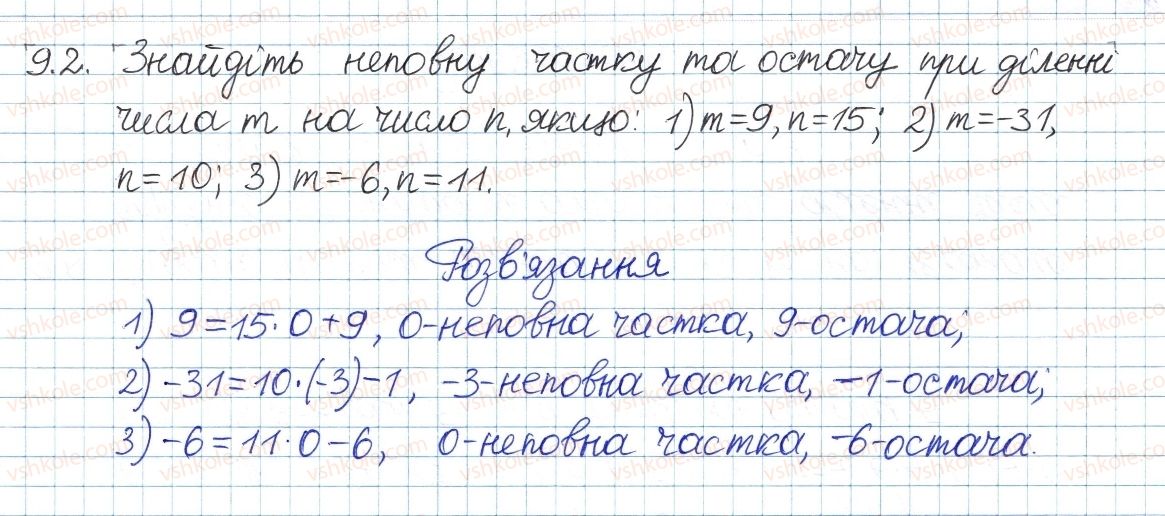 9.2. Знайдіть неповну частку та остачу при діленні
числа m на число n, якщо: 1) m=9, n=15; 2) m=-31,
n=10; 3) m=-6, n=11.
Розв'язання
1) 9=15·0+9, 0-неповна частка, 9-остача;
2) -31=10·(-3)-1, -3-неповна частка, -1-остача;
3) -6=11·0-6, 0-неповна частка, -6-остача.